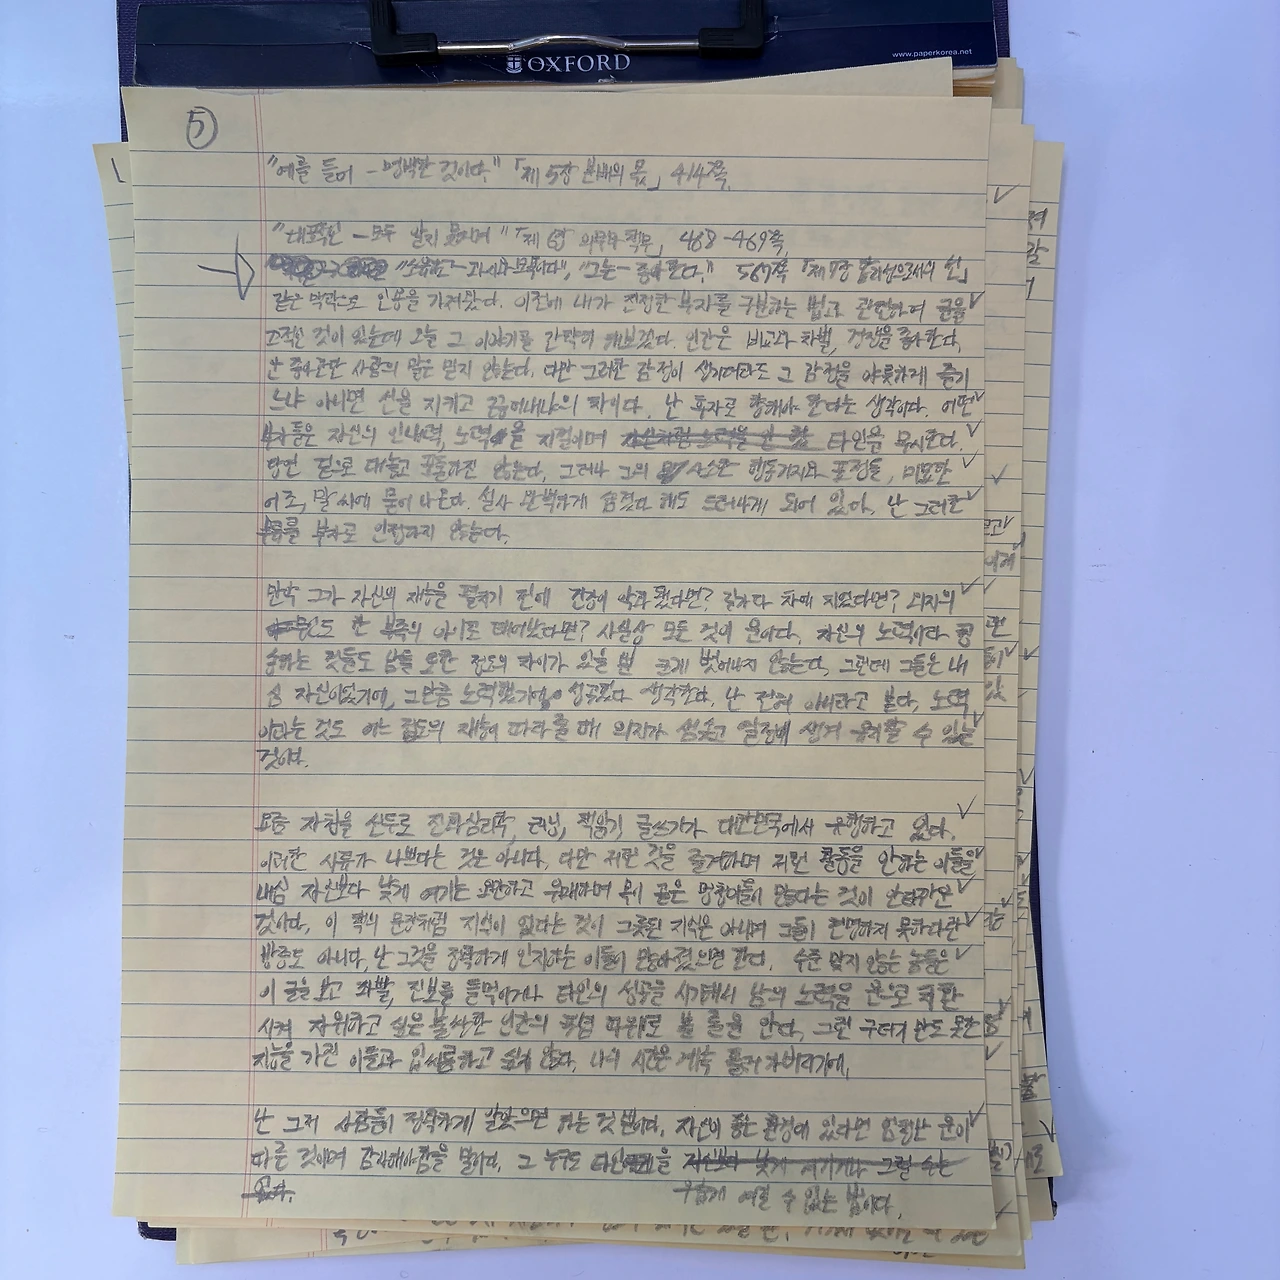 OXFORD
www.paperkorea.net
5
"예를 들어 - 명백한 것이다." 「제 5장 분배의 몫」 414쪽.
"대표적인 - 모두 받지 못하며" 「제 6장 의무와 책무」, 468-469쪽,
567쪽 「제 9장 합리성으로서의 선」
같은 맥락으로 인용을 가져왔다. 이전에 내가 진정한 부자를 구분하는 법으로 관련하여 글을
조적인 것이 있는데 오늘 그 이야기를 간략히 해보겠다. 인간은 비교와 차별, 경쟁을 좋아한다.
안 좋아한단 사람의 말은 믿지 않는다. 다만 그러한 감정이 생기더라도 그 감정을 야릇하게 즐기
느냐 아니면 선을 지키고 끊어내냐의 차이다. 난 후자로 향해야 한다는 생각이다. 어떤
부자들은 자신의 인내력, 노력을 자랑이며 타인을 무시한다.
당연 겉으로 대놓고 표출하진 않는다. 그러나 그의 사소한 행동거지와 표정들, 미묘한
어조, 말씨에 묻어 나온다. 설사 완벽하게 숨겼다 해도 드러나게 되어 있다. 난 그러한
부류를 부자로 인정하지 않는다.
만약 그가 자신의 재능을 펼치기 전에 건강이 악화됐다면? 길가다 차에 치였다면? 오지의
한 부족의 아이로 태어났다면? 사실상 모든 것이 운이다. 자신의 노력이라 칭
송하는 것들도 남들 또한 정도의 차이가 있을 뿐 크게 벗어나지 않는다. 그런데 그들은 내
심 자신이었기에, 그만큼 노력했기에 성공했다 생각한다. 난 전혀 아니라고 본다. 노력
이라는 것도 어느 정도의 재능이 따라줄 때 의지가 샘솟고 열정이 생겨 유지할 수 있는
것이다.
요즘 자청을 선두로 진화심리학, 러닝, 책읽기, 글쓰기가 대한민국에서 유행하고 있다.
이러한 사류가 나쁘다는 것은 아니다. 다만 저런 것을 즐겨하며 저런 활동을 안하는 이들을
내심 자신보다 낮게 여기는 오만하고 우매하며 목이 곧은 멍청이들이 많다는 것이 안타까운
것이다. 이 책의 문장처럼 지식이 없다는 것이 그릇된 지식은 아니며 그들이 현명하지 못하다란
방증도 아니다. 난 그것을 정확하게 인지하는 이들이 많아졌으면 한다. 수준 맞지 않는 놈들은
이 글을 보고 좌빨, 진보를 들먹이거나 타인의 성공을 시기해서 남의 노력을 운으로 치환
시켜 자위하고 싶은 불쌍한 인간의 푸념 따위로 볼 줄을 안다. 그런 구더기만도 못한
지능을 가진 이들과 입씨름하고 싶지 않다. 나의 시간은 계속 흘러가버리기에.
난 그저 사람들이 정확하게 알았으면 하는 것 뿐이다. 자신이 좋은 환경에 있다면 엄청난 운이
따른 것이며 감사해야함을 말이다. 그 누구도 타인을
우습게 여길 수 없는 법이다.